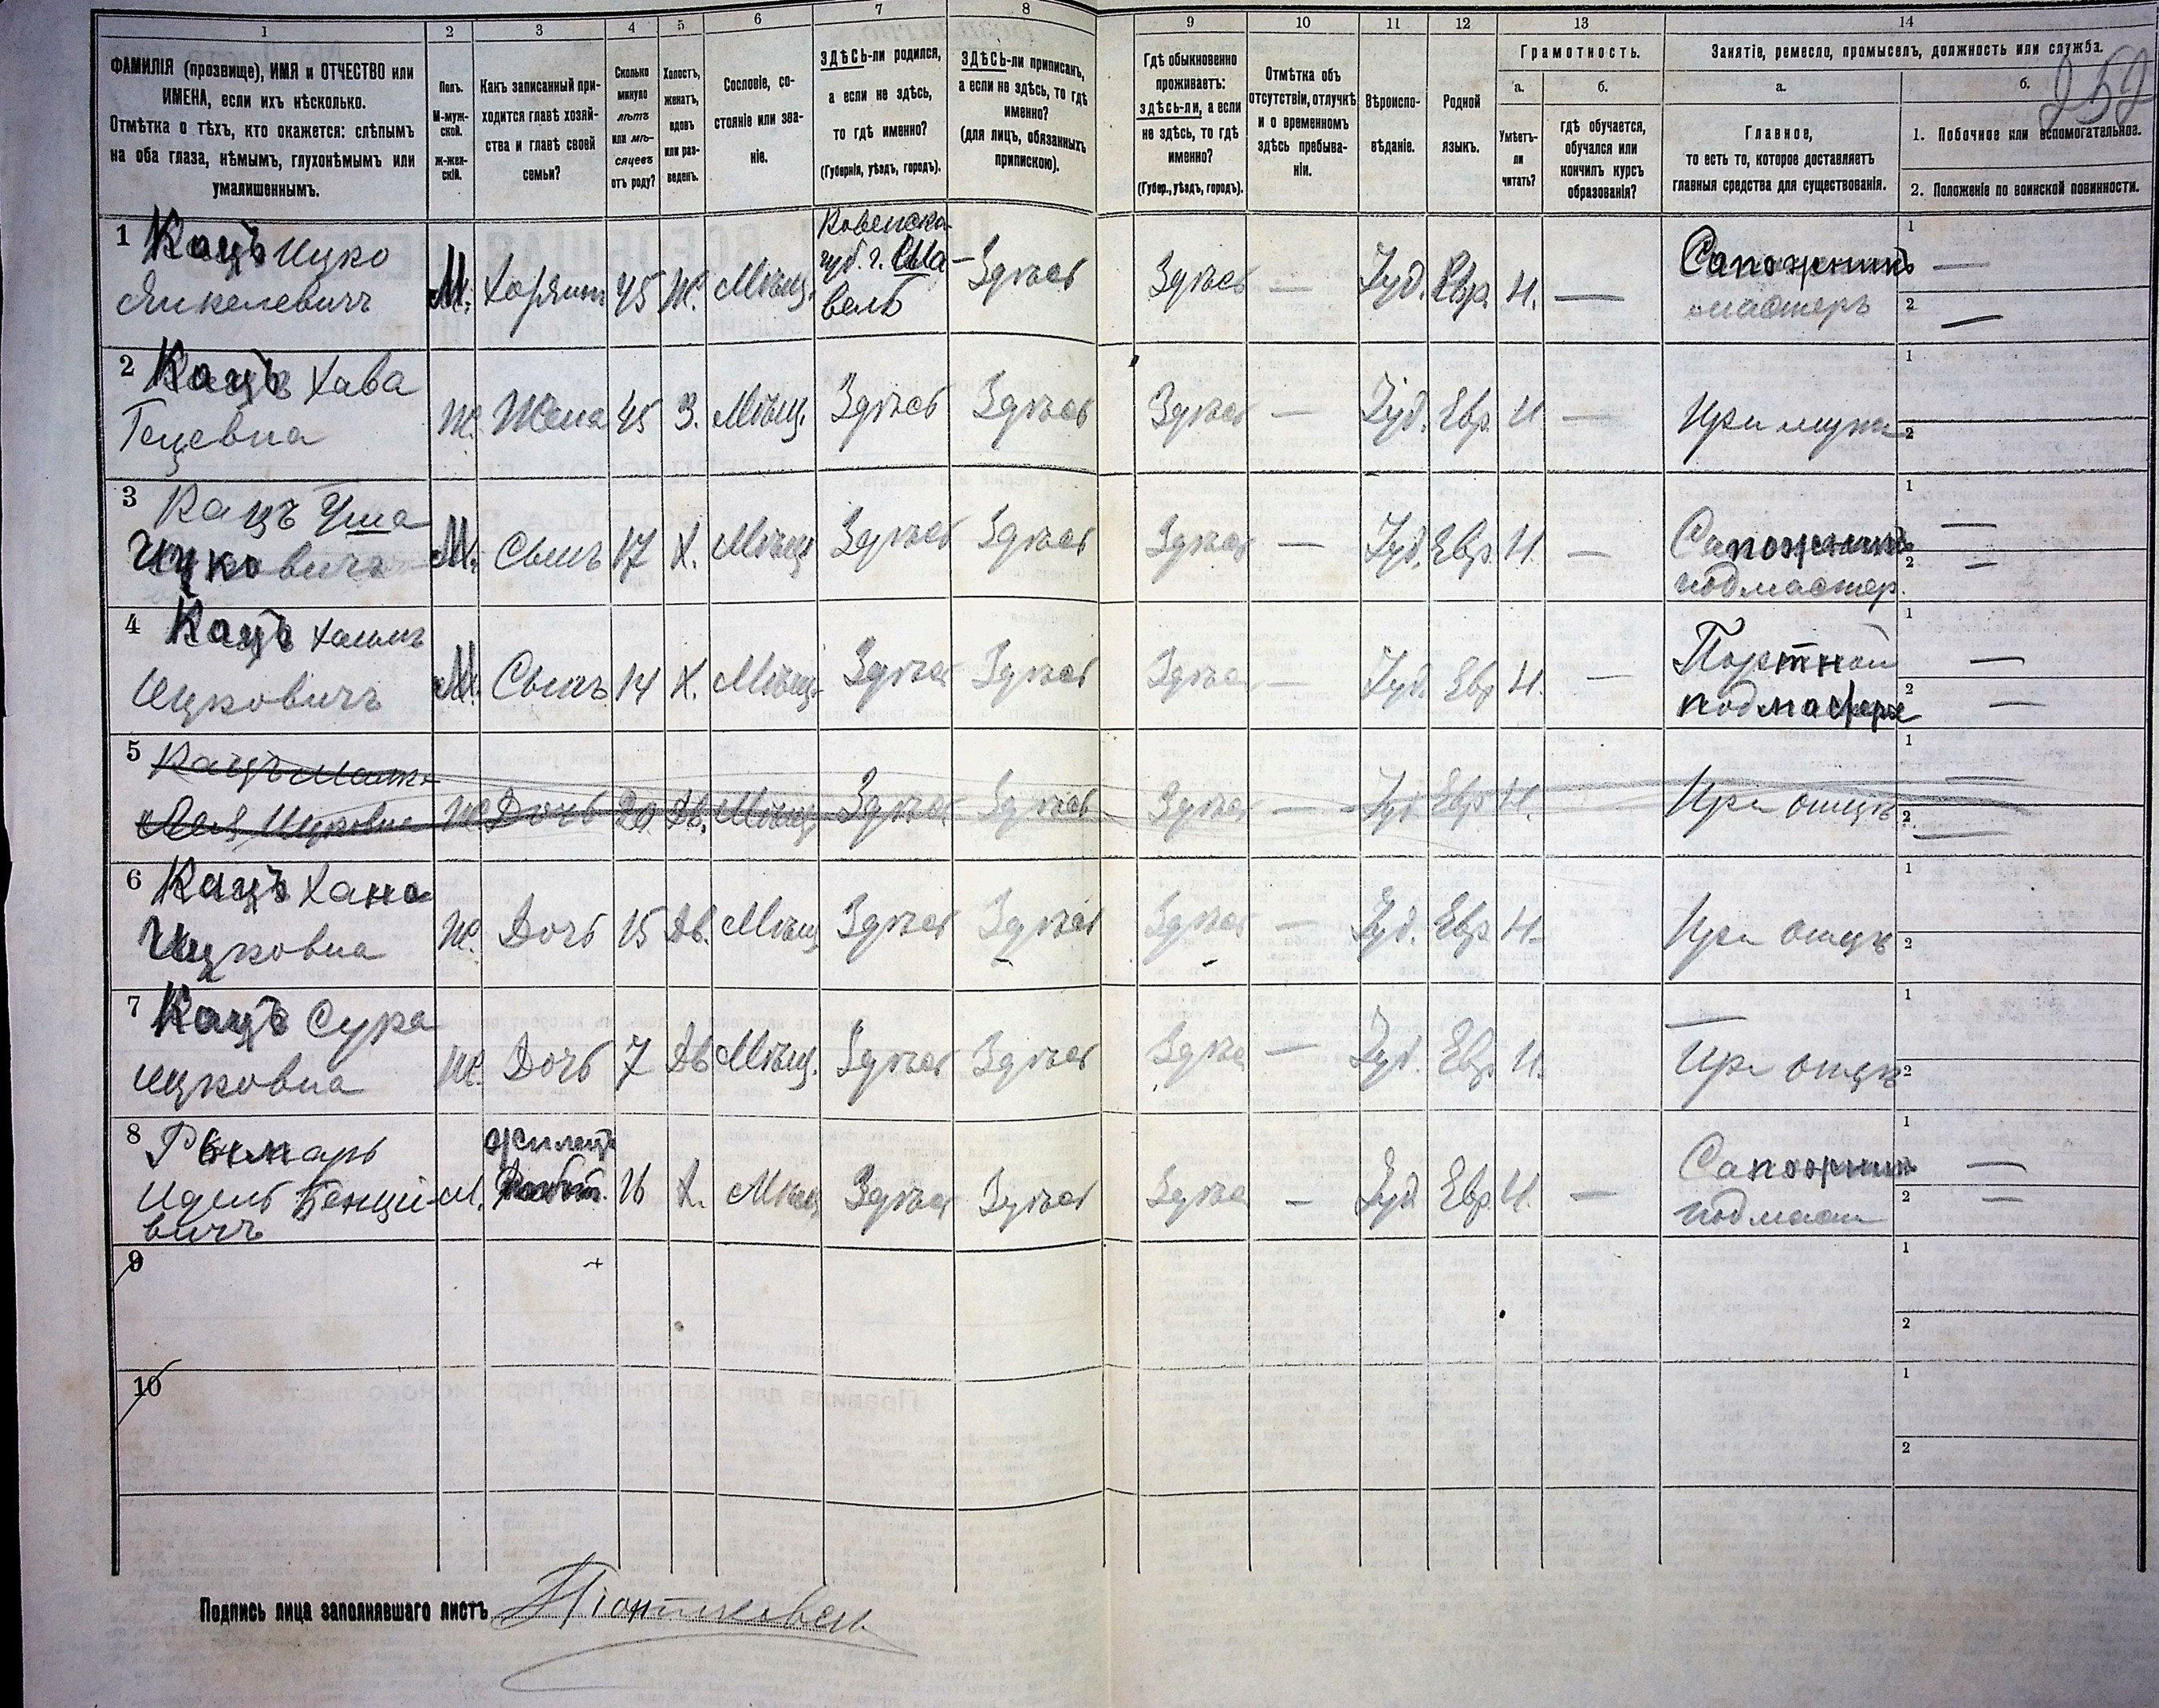 1 2 3 4 5 6 7 8 9 10 11 12 13 14
ФАМИЛІЯ (прозвище), ИМЯ и ОТЧЕСТВО или
ИМЕНА, если ихъ нѣсколько.
Отмѣтка о тѣхъ, кто окажется: слѣпымъ
на оба глаза, нѣмымъ, глухонѣмымъ или
умалишеннымъ.
Полъ.
М-муж-
ской.
ж-жен-
скій.
Какъ записанный при-
ходится главѣ хозяй-
ства и главѣ своей
семьи?
Сколько
минуло
лѣтъ
или мѣ-
сяцевъ
отъ роду?
Холостъ,
женатъ,
вдовъ
или раз-
веденъ.
Сословіе, со-
стояніе или зва-
ніе.
ЗДѢСЬ-ли родился,
а если не здѣсь,
то гдѣ именно?
(Губернія, уѣздъ, городъ).
ЗДѢСЬ-ли приписанъ,
а если не здѣсь, то гдѣ
именно?
(для лицъ, обязанныхъ
припискою).
Гдѣ обыкновенно
проживаетъ:
здѣсь-ли, а если
не здѣсь, то гдѣ
именно?
(Губер., уѣздъ, городъ).
Отмѣтка объ
отсутствіи, отлучкѣ
и о временномъ
здѣсь пребыва-
ніи.
Вѣроиспо-
вѣданіе.
Родной
языкъ.
Грамотность.
а.
Умѣетъ-
ли
читать?
б.
гдѣ обучается,
обучался или
кончилъ курсъ
образованія?
Занятіе, ремесло, промыселъ, должность или служба.
а.
Главное,
то есть то, которое доставляетъ
главныя средства для существованія.
б.
252
1. Побочное или вспомогательное.
2. Положеніе по воинской повинности.
1 Кацъ Ицко
Янкелевичъ
М. Хозяинъ 45 Ж. Мѣщ.
Ковенска
губ. г. Ша-
вель
Здѣсь Здѣсь — Іуд. Евр. Н. —
Сапожникъ
мастеръ
1 —
2 —
2 Кацъ Хава
Гецевна
Ж. Жена 45 З. Мѣщ. Здѣсь Здѣсь Здѣсь — Іуд. Евр. Н —
При мужѣ
1
2
3 Кацъ Уша
Ицковичъ
М. Сынъ 17 Х. Мѣщ. Здѣсь Здѣсь Здѣсь — Іуд. Евр. Н. —
Сапожникъ
подмастер.
1 —
2 —
4 Кацъ Хаимъ
Ицковичъ
М. Сынъ 14 Х. Мѣщ. Здѣсь Здѣсь Здѣсь — Іуд. Евр Н. —
Портной
подмастерье
1 —
2 —
5 Кацъ
Ицковна
Ж. Дочь 20 Дв. Мѣщ. Здѣсь Здѣсь Здѣсь — Іуд. Евр Н.
При отцѣ
1 —
2 —
6 Кацъ Хана
Ицковна
Ж. Дочь 15 Дв. Мѣщ Здѣсь Здѣсь Здѣсь — Іуд. Евр Н.
При отцѣ
1
2
7 Кацъ Сура
Ицковна
Ж. Дочь 7 Дв Мѣщ. Здѣсь Здѣсь Здѣсь — Іуд. Евр. Н.
При отцѣ
1
2
8 Рымарь
Идель Бенціо-
вичъ
М. жилец 16 Х. Мѣщ Здѣсь Здѣсь Здѣсь — Іуд Евр. Н. —
Сапожник
подмаст
1 —
2 —
9
1
2
10
1
2
Подпись лица заполнявшаго листъ